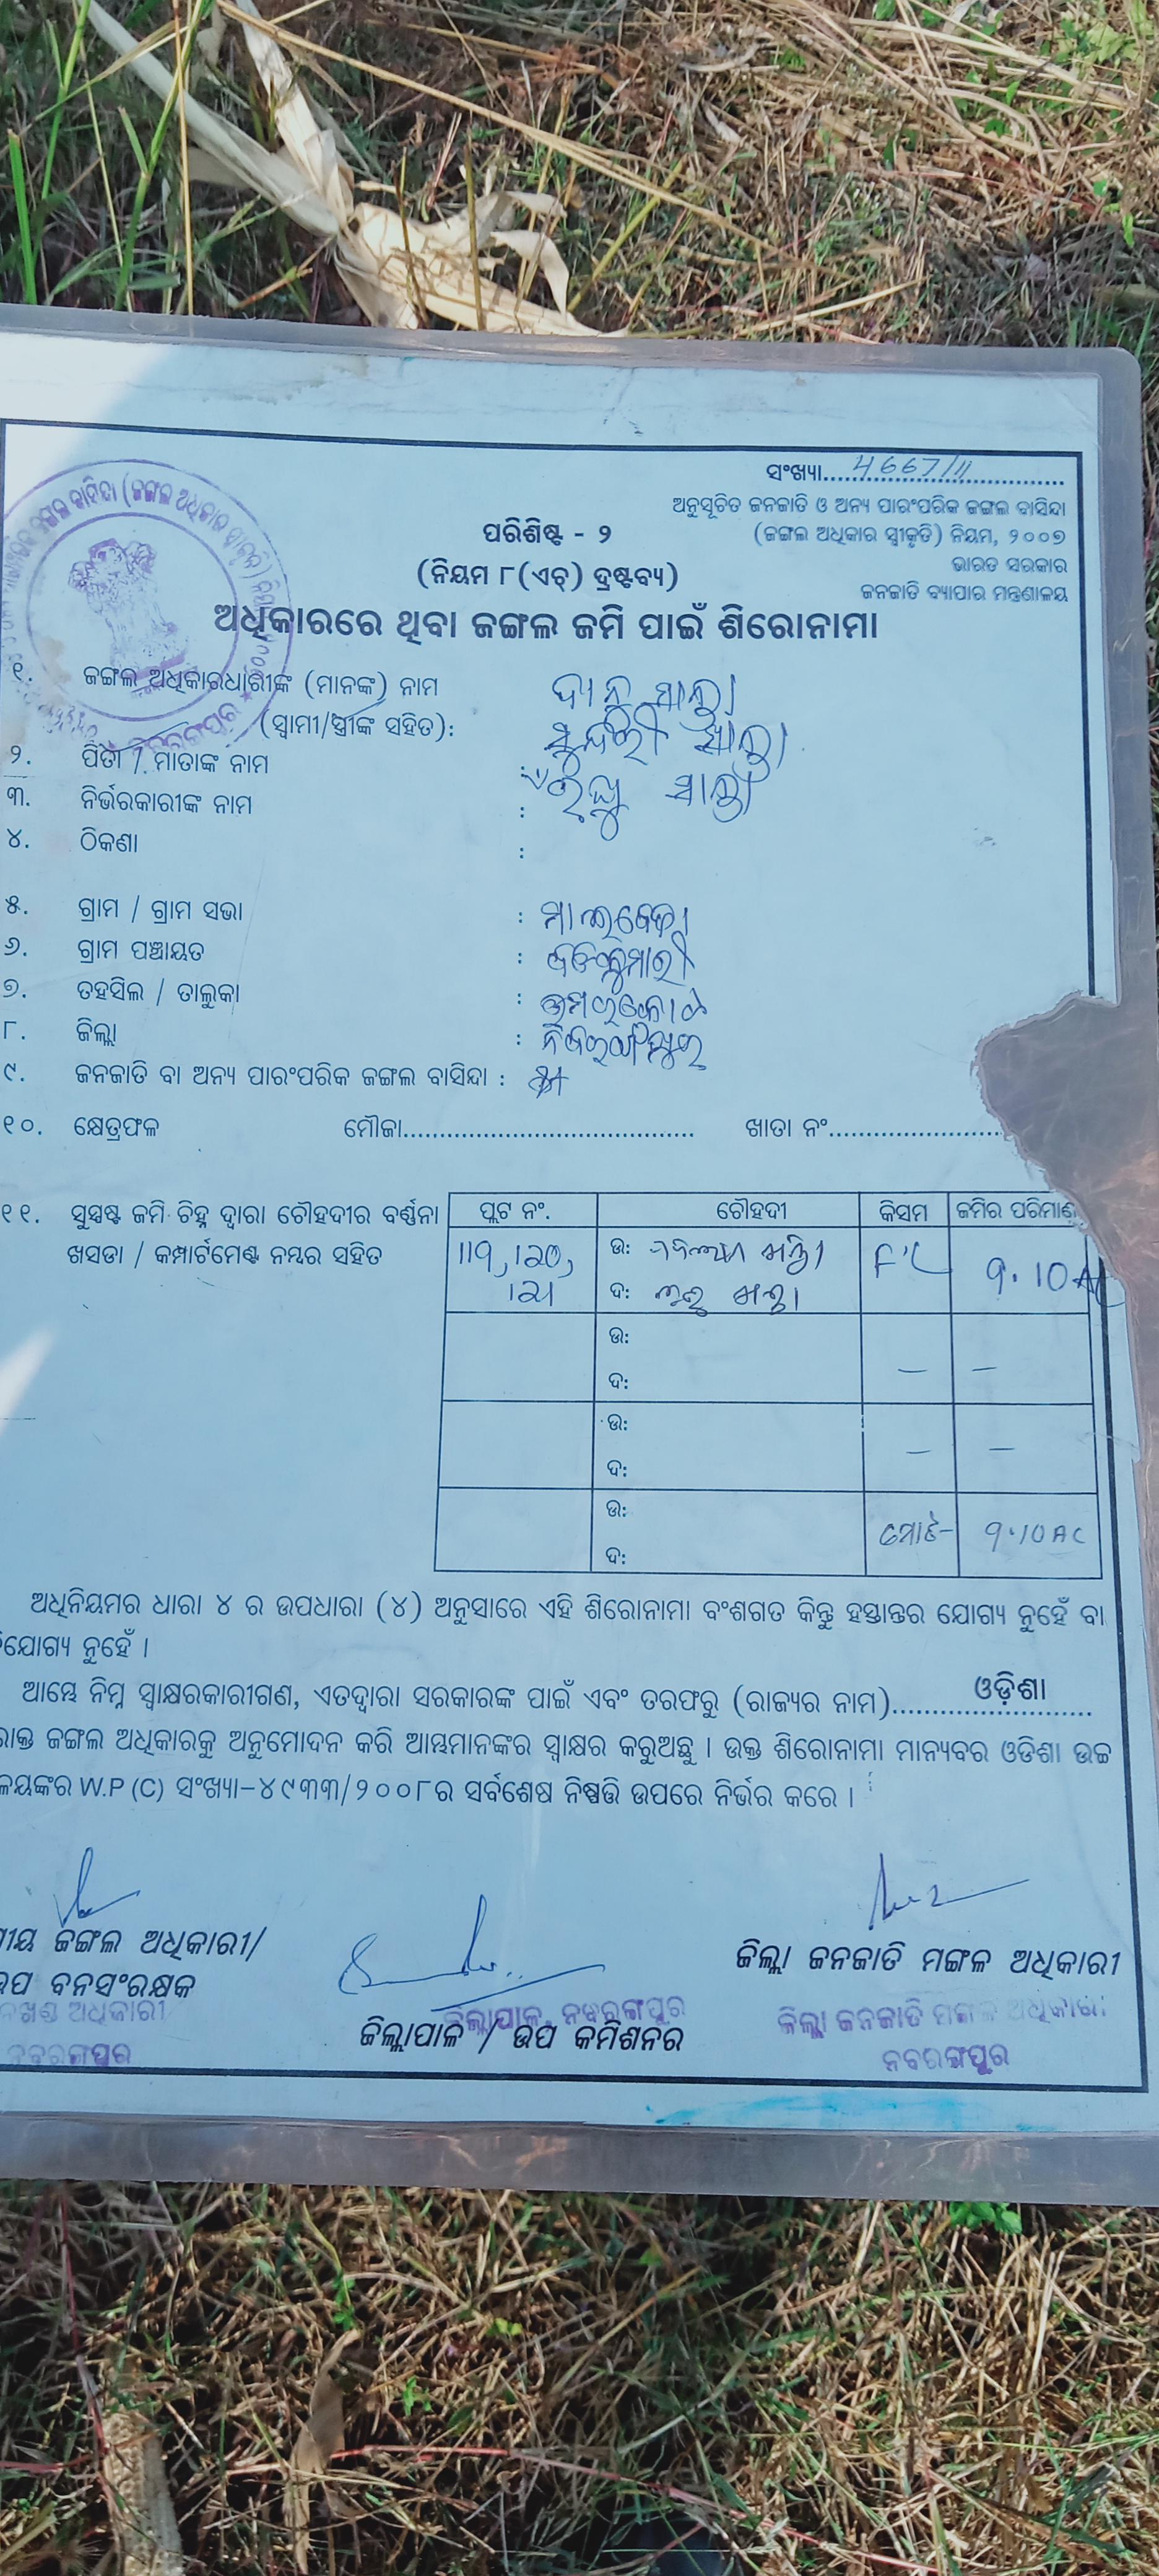 ସଂଖ୍ୟା.... 4667/11
ଅନୁସୂଚିତ ଜନଜାତି ଓ ଅନ୍ୟ ପାରଂପରିକ ଜଙ୍ଗଲ ବାସିନ୍ଦା
(ଜଙ୍ଗଲ ଅଧିକାର ସ୍ୱୀକୃତି) ନିୟମ, ୨୦୦୭
ଭାରତ ସରକାର
ଜନଜାତି ବ୍ୟାପାର ମନ୍ତ୍ରଣାଳୟ
ପରିଶିଷ୍ଟ - ୨
(ନିୟମ ୮(ଏଚ୍) ଦ୍ରଷ୍ଟବ୍ୟ)
ଅଧିକାରରେ ଥିବା ଜଙ୍ଗଲ ଜମି ପାଇଁ ଶିରୋନାମା
୧. ଜଙ୍ଗଲ ଅଧିକାରଧାରୀଙ୍କ (ମାନଙ୍କ) ନାମ
(ସ୍ୱାମୀ/ସ୍ତ୍ରୀଙ୍କ ସହିତ):
୨. ପିତା / ମାତାଙ୍କ ନାମ :
୩. ନିର୍ଭରକାରୀଙ୍କ ନାମ :
୪. ଠିକଣା :
୫. ଗ୍ରାମ / ଗ୍ରାମ ସଭା :
୬. ଗ୍ରାମ ପଞ୍ଚାୟତ :
୭. ତହସିଲ / ତାଲୁକା : ଉମରକୋଟ
୮. ଜିଲ୍ଲା : ନବରଙ୍ଗପୁର
୯. ଜନଜାତି ବା ଅନ୍ୟ ପାରଂପରିକ ଜଙ୍ଗଲ ବାସିନ୍ଦା :
୧୦. କ୍ଷେତ୍ରଫଳ ମୌଜା.... ଖାତା ନଂ....
୧୧. ସୁସ୍ପଷ୍ଟ ଜମି ଚିହ୍ନ ଦ୍ୱାରା ଚୌହଦୀର ବର୍ଣ୍ଣନା
ଖସଡା / କମ୍ପାର୍ଟମେଣ୍ଟ ନମ୍ବର ସହିତ
ପ୍ଲଟ ନଂ. ଚୌହଦୀ କିସମ ଜମିର ପରିମାଣ
119, 120, ଉ:
121 ଦ:
ଉ:
ଦ: — —
ଉ:
ଦ: — —
ଉ: ମୋଟ-
ଦ:
ଅଧିନିୟମର ଧାରା ୪ ର ଉପଧାରା (୪) ଅନୁସାରେ ଏହି ଶିରୋନାମା ବଂଶଗତ କିନ୍ତୁ ହସ୍ତାନ୍ତର ଯୋଗ୍ୟ ନୁହେଁ ବା
ଯୋଗ୍ୟ ନୁହେଁ ।
ଆମ୍ଭେ ନିମ୍ନ ସ୍ୱାକ୍ଷରକାରୀଗଣ, ଏତଦ୍ୱାରା ସରକାରଙ୍କ ପାଇଁ ଏବଂ ତରଫରୁ (ରାଜ୍ୟର ନାମ).... ଓଡ଼ିଶା
ଜଙ୍ଗଲ ଅଧିକାରକୁ ଅନୁମୋଦନ କରି ଆମ୍ଭମାନଙ୍କର ସ୍ୱାକ୍ଷର କରୁଅଛୁ । ଉକ୍ତ ଶିରୋନାମା ମାନ୍ୟବର ଓଡିଶା ଉଚ୍ଚ
W.P (C) ସଂଖ୍ୟା-୪୯୩୩/୨୦୦୮ର ସର୍ବଶେଷ ନିଷ୍ପତ୍ତି ଉପରେ ନିର୍ଭର କରେ ।
ଜଙ୍ଗଲ ଅଧିକାରୀ/
ଉପ ବନସଂରକ୍ଷକ
ଅଧିକାରୀ
ନବରଙ୍ଗପୁର
ଜିଲ୍ଲାପାଳ, ନବରଙ୍ଗପୁର
ଜିଲ୍ଲାପାଳ / ଉପ କମିଶନର
ଜିଲ୍ଲା ଜନଜାତି ମଙ୍ଗଳ ଅଧିକାରୀ
ଜିଲ୍ଲା ଜନଜାତି ମଙ୍ଗଳ ଅଧିକାରୀ
ନବରଙ୍ଗପୁର